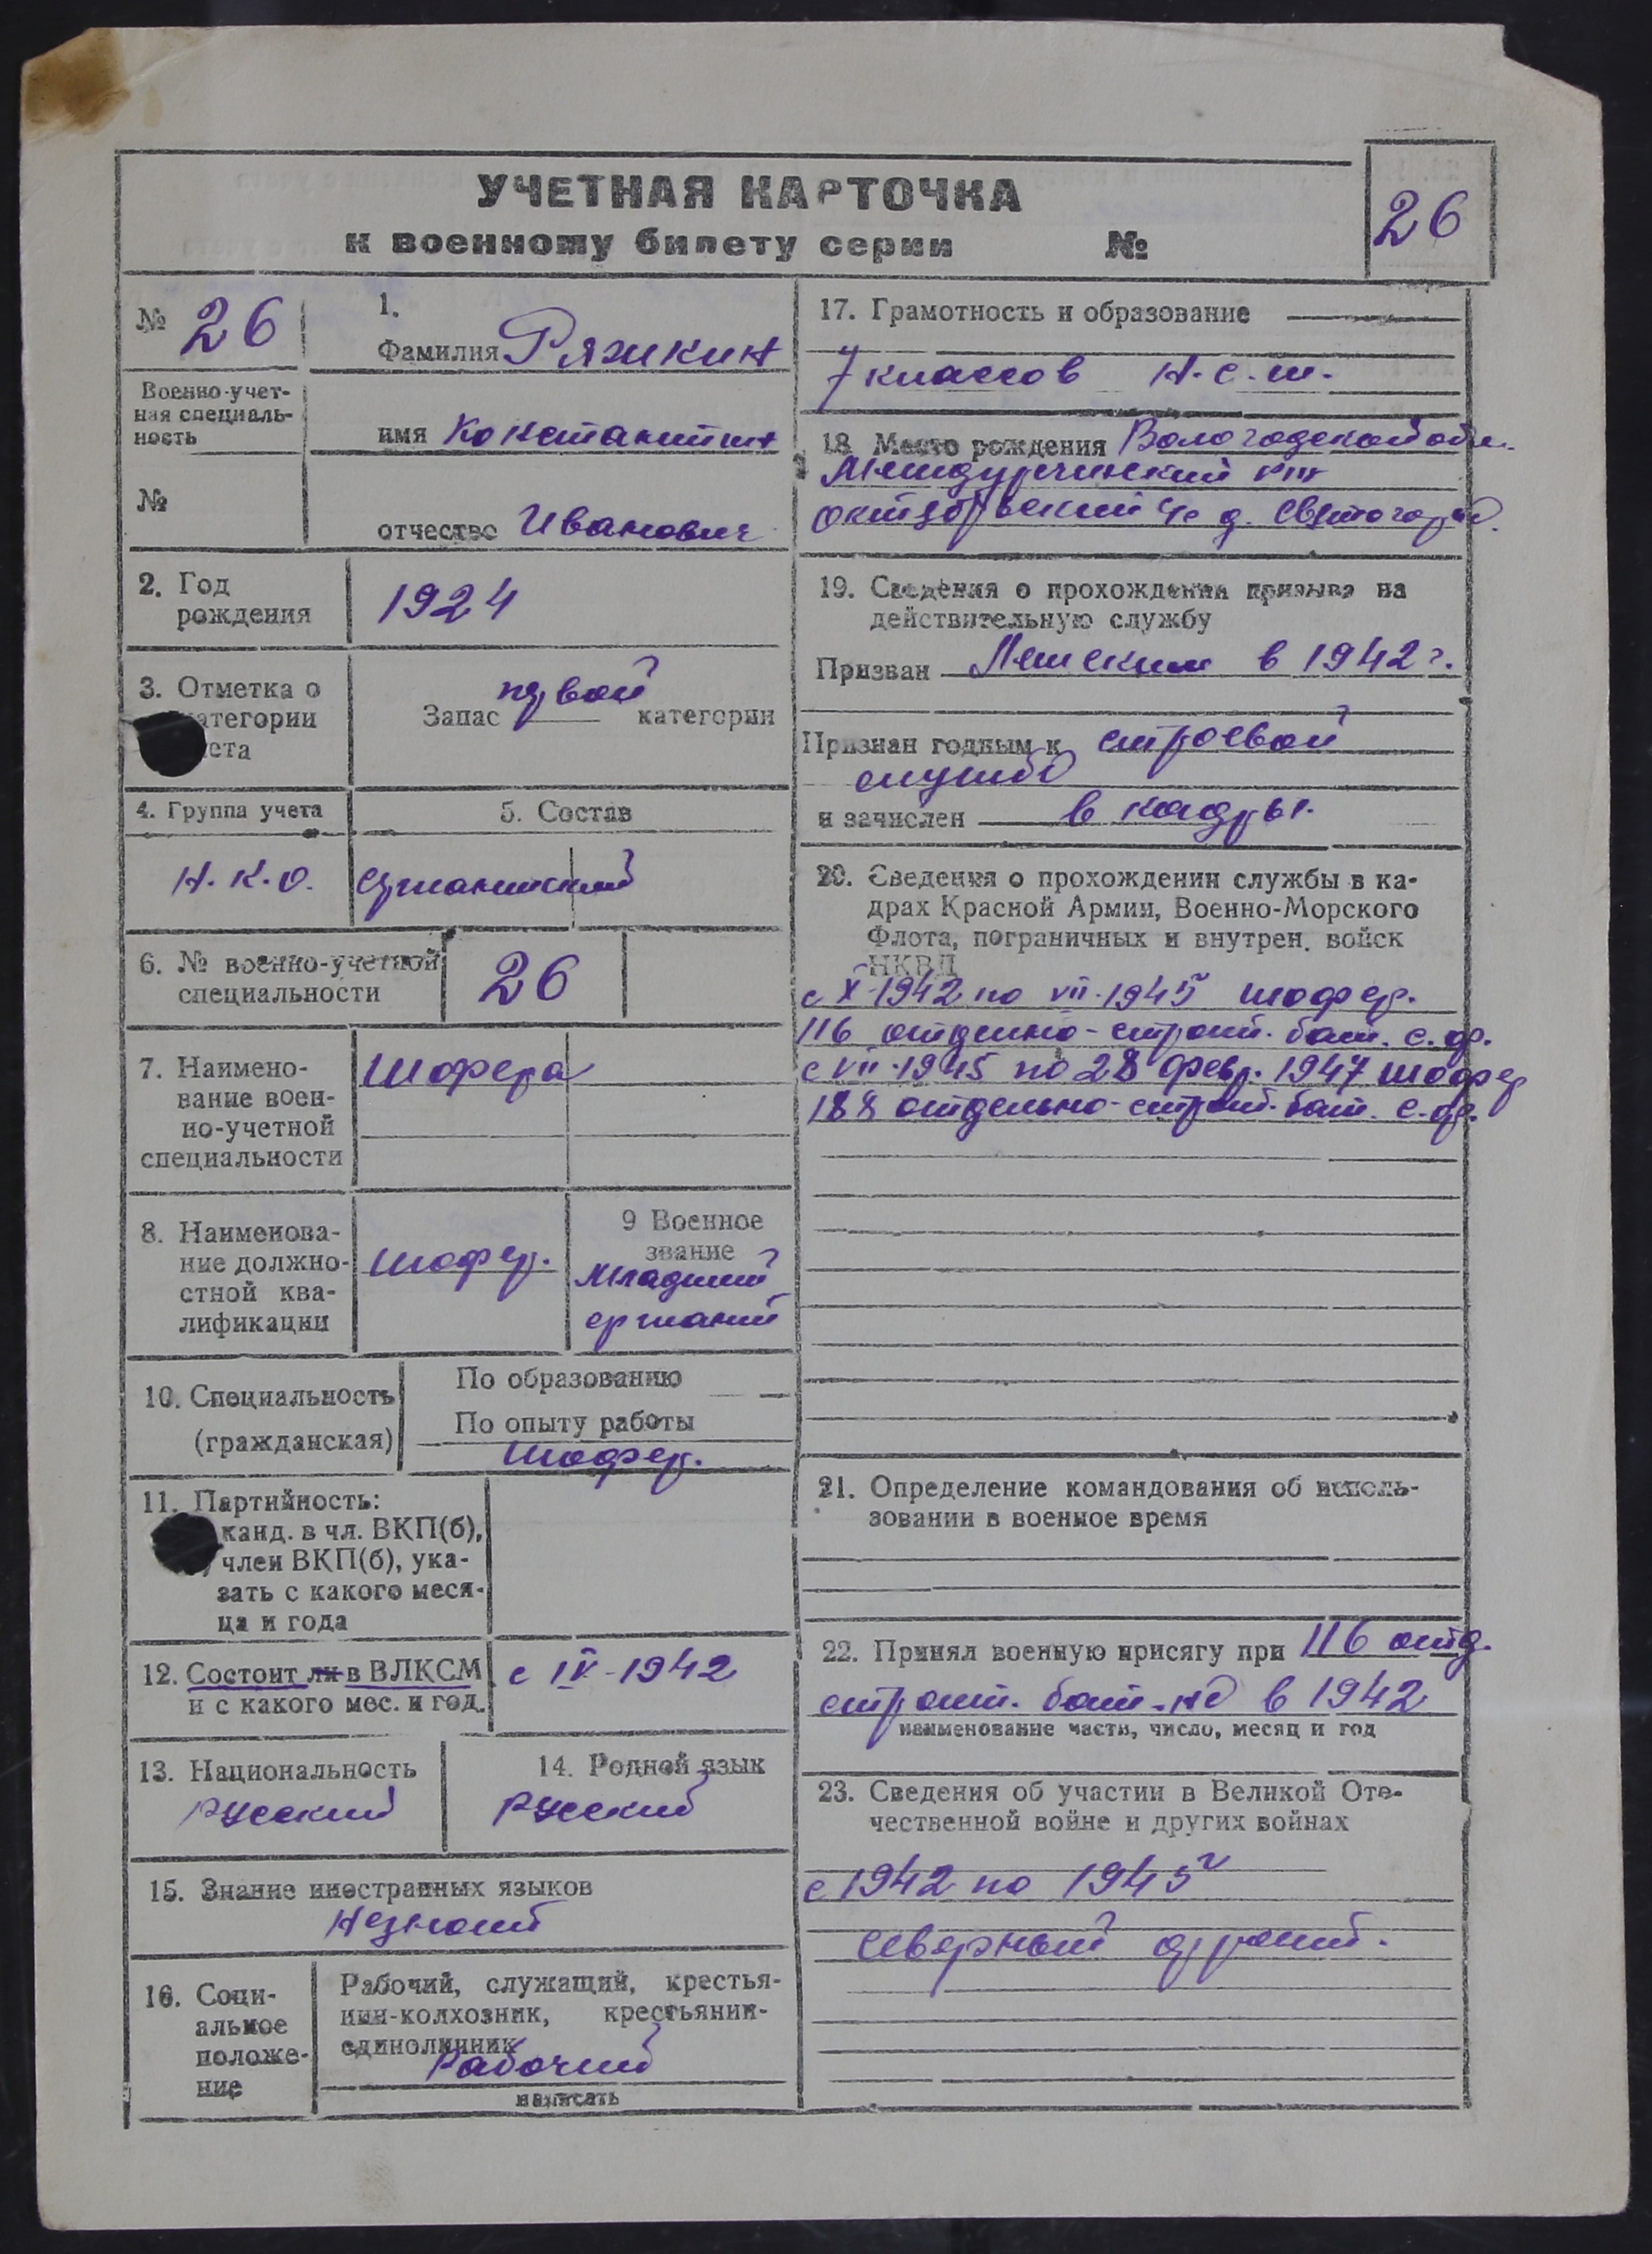 УЧЕТНАЯ КАРТОЧКА
к военному билету серии №
26
№ 26
Военно-учет-
ная специаль-
ность
№
1.
Фамилия Ряжкин
имя Константин
отчество Иванович
2. Год
рождения
1924
3. Отметка о
категории
ста
Запас первой категории
4. Группа учета
Н.К.О.
5. Состав
сржантский
6. № военно-учетной
специальности
26
7. Наимено-
вание воен-
но-учетной
специальности
Шофера
8. Наименова-
ние должно-
стной ква-
лификации
шофер.
9 Военное
звание
Младший
сржант
10. Специальность
(гражданская)
По образованию —
По опыту работы
Шофер.
11. Партийность:
канд. в чл. ВКП(б),
член ВКП(б), ука-
зать с какого меся-
ца и года
12. Состоит ли в ВЛКСМ
и с какого мес. и год.
с IV-1942
13. Национальность
русский
14. Родной язык
русский
15. Знание иностранных языков
Незнает
16. Соци-
альное
положе-
ние
Рабочий, служащий, крестья-
нин-колхозник, крестьянин-
единоличник
Рабочий
написать
17. Грамотность и образование
7 классов Н.С.Ш.
18 Место рождения Вологодской обл.
Междуреченский
Октябрьский с/с д.
19. Сведения о прохождении призыва на
действительную службу
Призван в 1942 г.
Признан годным к строевой
службе
и зачислен в кадры.
20. Сведения о прохождении службы в ка-
драх Красной Армии, Военно-Морского
Флота, пограничных и внутрен. войск
НКВД
с X-1942 по VII-1945 шофер.
116 отдельно-строит. бат. с.ф.
с VII-1945 по 28 февр. 1947 шофер
188 отдельно-строит. бат. с.ф.
21. Определение командования об исполь-
зовании в военное время
22. Принял военную присягу при 116 отд.
строит. бат-не в 1942
наименование части, число, месяц и год
23. Сведения об участии в Великой Оте-
чественной войне и других войнах
с 1942 по 1945
северный фронт.